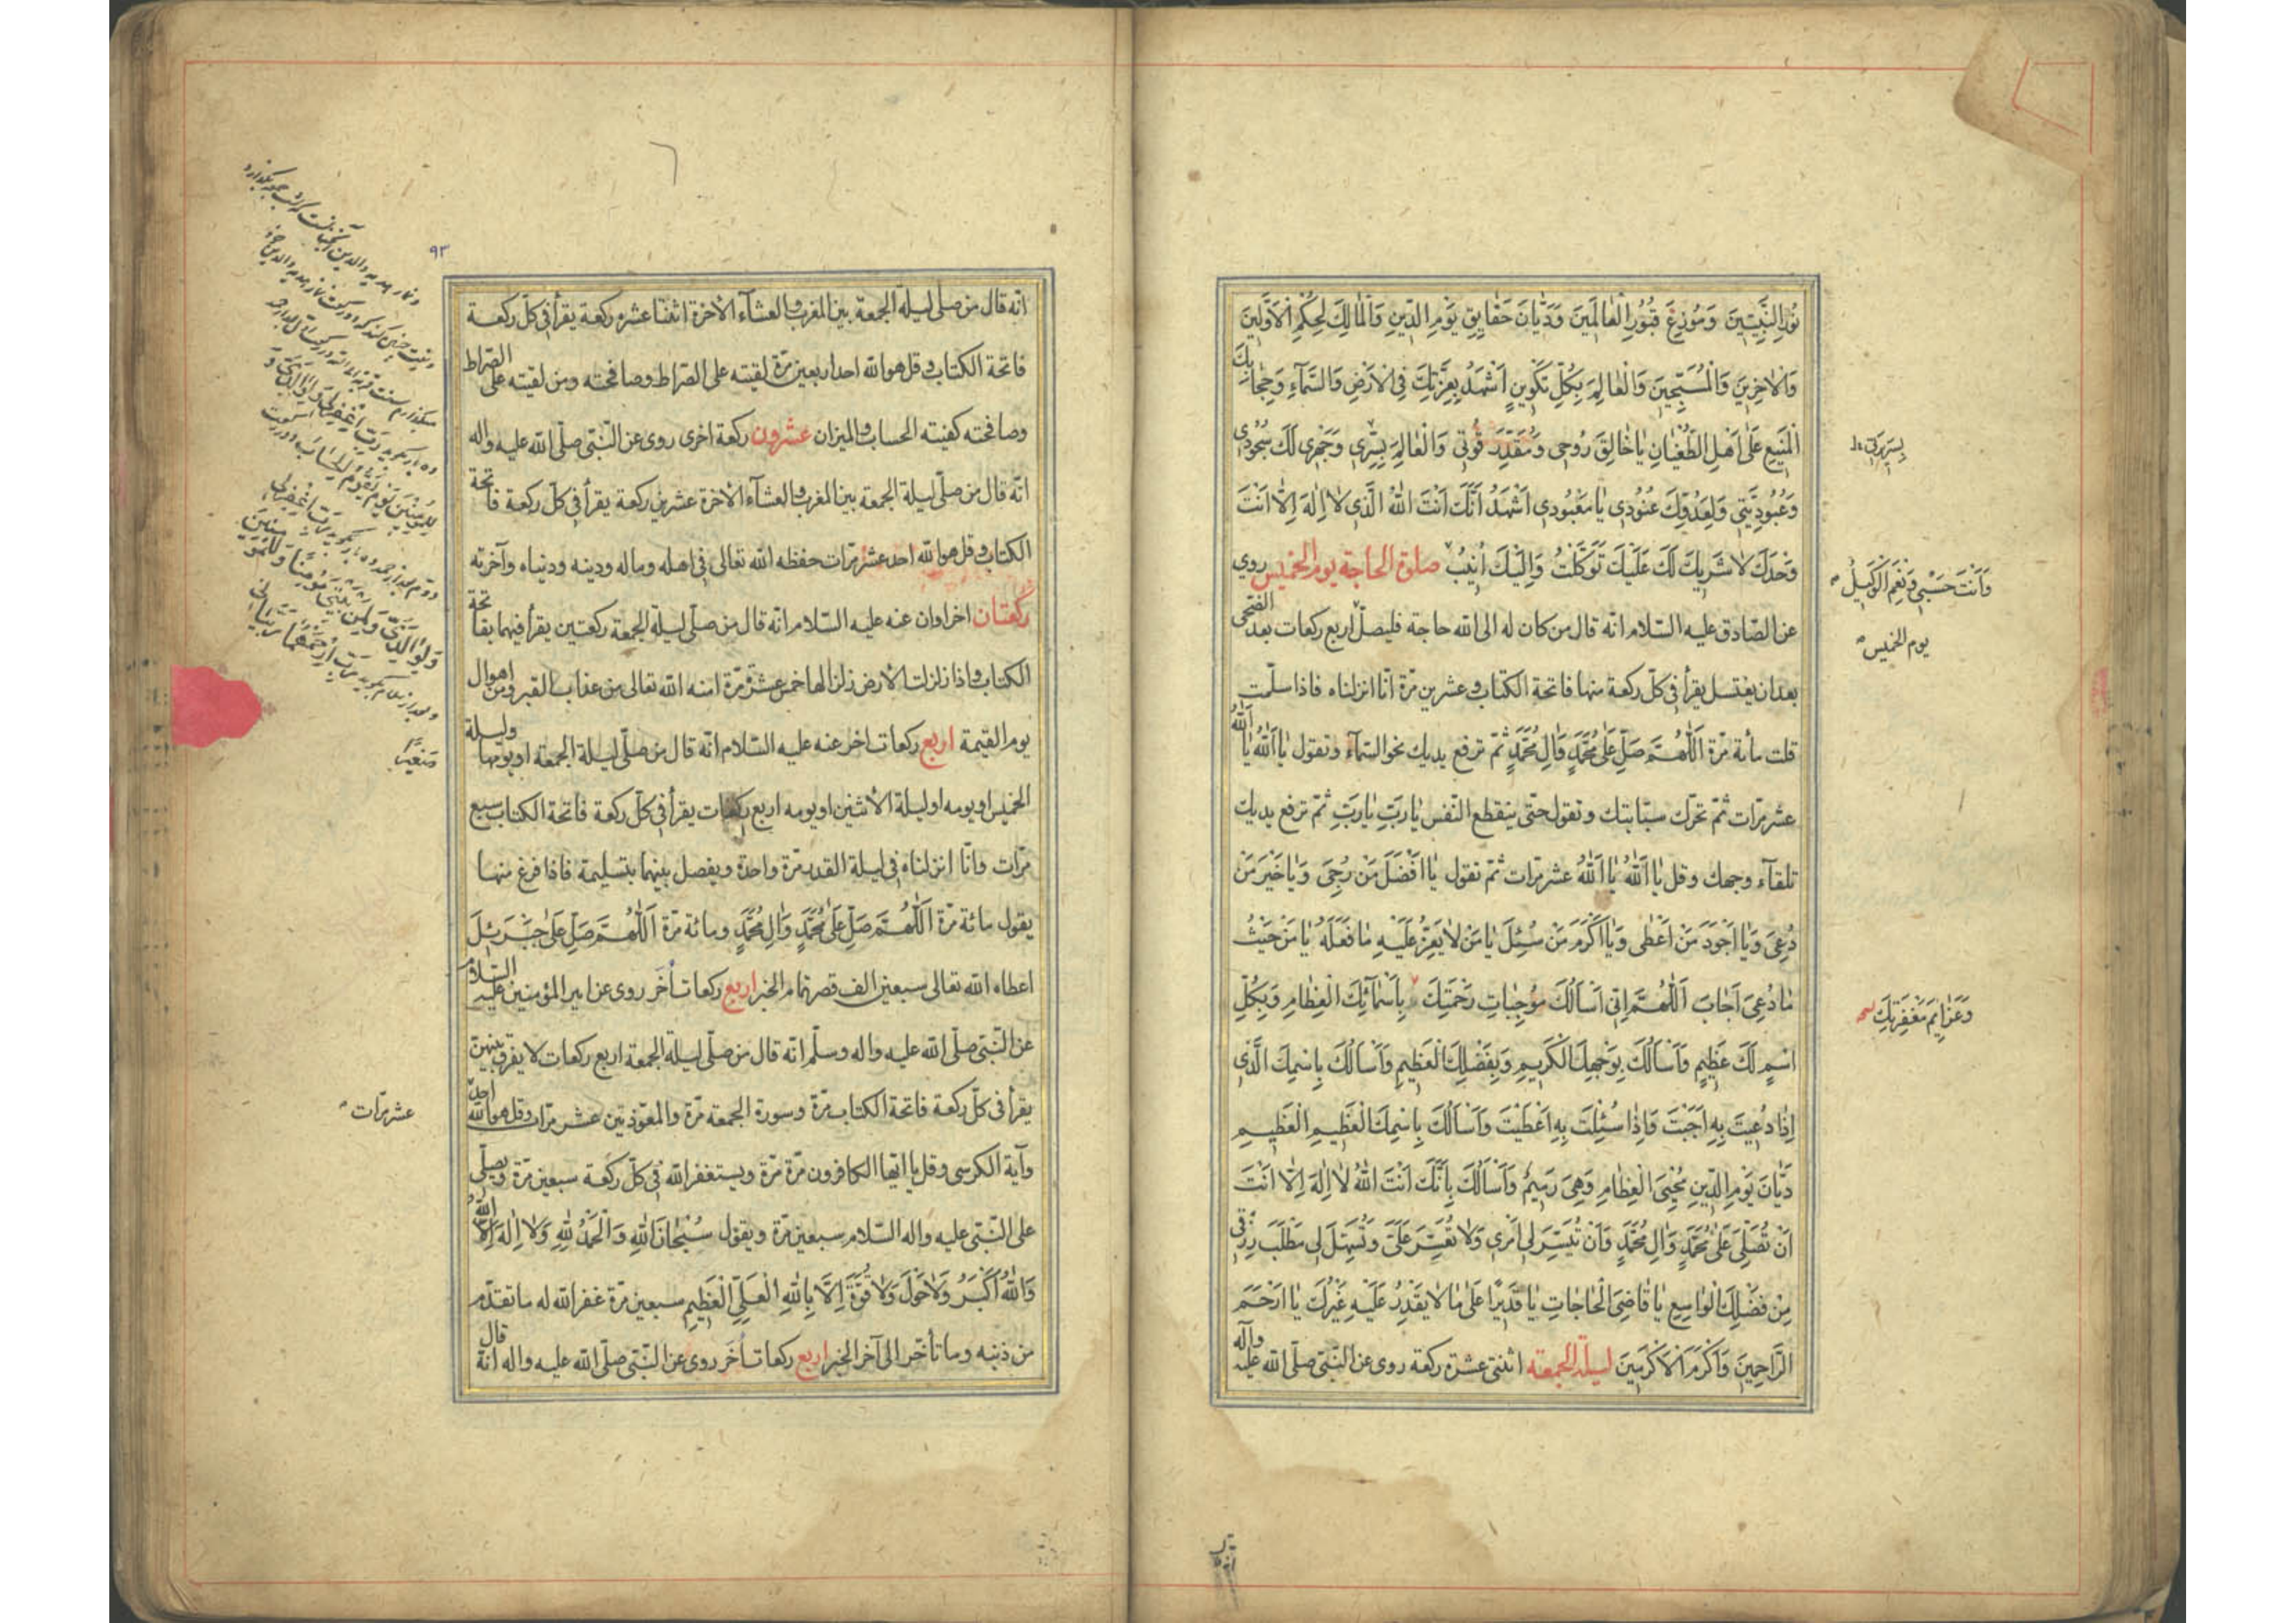 نُورِ النَّبِيّينَ وَمُوزِعَ قُبُورِ الْعٰالَمِينَ وَدَيّٰانَ حَقٰايِقِ يَوْمِ الدّينِ وَالْمٰالِكَ لِحُكْمِ الْاَوَّلِينَ
وَالْاٰخِرِينَ وَالْمُسَبِّحِينَ وَالْعٰالِمَ بِكُلِّ تَكْوِينٍ اَشْهَدُ بِعِزَّتِكَ فِي الْاَرْضِ وَالسَّمٰآءِ وَحِجٰابِكَ
الْمَنِيعِ عَلٰى اَهْلِ الطُّغْيٰانِ يٰا خٰالِقَ رُوحِى وَمُقَدِّرَ قُوتِى وَالْعٰالِمَ بِسِرِّى وَجَهْرِى لَكَ سُجُودِى
وَعُبُودِيَّتِى وَلِعَدُوِّكَ عُنُودِى يٰا مَعْبُودِى اَشْهَدُ اَنَّكَ اَنْتَ اللّٰهُ الَّذِى لٰا اِلٰهَ اِلّٰا اَنْتَ
وَحْدَكَ لٰا شَرِيكَ لَكَ عَلَيْكَ تَوَكَّلْتُ وَاِلَيْكَ اُنِيبُ صلوة الحاجة يوم الخميس روي
وَاَنْتَ حَسْبِى وَنِعْمَ الْوَكِيلُ
عن الصّادق عليه السّلام انّه قال من كان له الى الله حاجة فليصلّ اربع ركعات بعد الضحى
يوم الخميس
بعد ان يغتسل يقرأ فى كلّ ركعة منها فاتحة الكتاب و عشرين مرّة انّا انزلناه فاذا سلّمت
قلت مأئة مرّة اَللّٰهُمَّ صَلِّ عَلٰى مُحَمَّدٍ وَاٰلِ مُحَمَّدٍ ثمّ ترفع يديك نحو السّمآء وتقول يٰا اَللّٰهُ يٰا اَللّٰهُ
عشر مرّات ثمّ تحرّك سبّابتيك وتقول حتّى ينقطع النّفس يٰا رَبِّ يٰا رَبِّ ثمّ ترفع يديك
تلقآء وجهك وقل يٰا اَللّٰهُ يٰا اَللّٰهُ عشر مرّات ثمّ تقول يٰا اَفْضَلَ مَنْ رُجِىَ وَيٰا خَيْرَ مَنْ
دُعِىَ وَيٰا اَجْوَدَ مَنْ اَعْطٰى وَيٰا اَكْرَمَ مَنْ سُئِلَ يٰا مَنْ لٰا يَعِزُّ عَلَيْهِ مٰا فَعَلَهُ يٰا مَنْ حَيْثُ
مٰا دُعِىَ اَجٰابَ اَللّٰهُمَّ اِنِّى اَسْاَلُكَ مُوجِبٰاتِ رَحْمَتِكَ بِاَسْمٰآئِكَ الْعِظٰامِ وَبِكُلِّ
وَعَزٰايِمَ مَغْفِرَتِكَ
اسْمٍ لَكَ عَظِيمٍ وَاَسْاَلُكَ بِوَجْهِكَ الْكَرِيمِ وَبِفَضْلِكَ الْعَظِيمِ وَاَسْاَلُكَ بِاسْمِكَ الَّذِى
اِذٰا دُعِيتَ بِهِ اَجَبْتَ وَاِذٰا سُئِلْتَ بِهِ اَعْطَيْتَ وَاَسْاَلُكَ بِاسْمِكَ الْعَظِيمِ الْعَظِيمِ
دَيّٰانَ يَوْمِ الدّينِ مُحْيِىَ الْعِظٰامِ وَهِىَ رَمِيمٌ وَاَسْاَلُكَ بِاَنَّكَ اَنْتَ اللّٰهُ لٰا اِلٰهَ اِلّٰا اَنْتَ
اَنْ تُصَلِّىَ عَلٰى مُحَمَّدٍ وَاٰلِ مُحَمَّدٍ وَاَنْ تُيَسِّرَ لِى اَمْرِى وَلٰا تُعَسِّرَ عَلَىَّ وَتُسَهِّلَ لِى مَطْلَبَ رِزْقِى
مِنْ فَضْلِكَ الْوٰاسِعِ يٰا قٰاضِىَ الْحٰاجٰاتِ يٰا قَدِيرًا عَلٰى مٰا لٰا يَقْدِرُ عَلَيْهِ غَيْرُكَ يٰا اَرْحَمَ
الرّٰاحِمِينَ وَاَكْرَمَ الْاَكْرَمِينَ ليلة الجمعة اثنتى عشرة ركعة روى عن النّبىّ صلّى الله عليه وآله
٩٣
انّه قال من صلّى ليلة الجمعة بين المغرب والعشآء الاخرة اثنتا عشره ركعة يقرأ فى كلّ ركعة
فاتحة الكتاب و قل هو الله احد اربعين مرّة لقيته على الصّراط وصافحته ومن لقيته على الصّراط
وصافحته كفيته الحساب والميزان عشرون ركعة اخرى روى عن النّبىّ صلّى الله عليه واله
انّه قال من صلّى ليلة الجمعة بين المغرب والعشآء الاخرة عشرين ركعة يقرأ فى كلّ ركعة فاتحة
الكتاب و قل هو الله احد عشر مرّات حفظه الله تعالى فى اهله وماله ودينه ودنياه وآخرته
ركعتان اخراوان عنه عليه السّلام انّه قال من صلّى ليلة الجمعة ركعتين يقرأ فيهما بفاتحة
الكتاب و اذا زلزلت الارض زلزالها خمس عشرة مرّة امنه الله تعالى من عذاب القبر ومن اهوال
يوم القيمة اربع ركعات اخر عنه عليه السّلام انّه قال من صلّى ليلة الجمعة او يومها وليلة
الخميس او يومه او ليلة الاثنين او يومه اربع ركعات يقرأ فى كلّ ركعة فاتحة الكتاب سبع
مرّات وانّا انزلناه فى ليلة القدر مرّة واحدة ويفصل بينهما بتسليمة فاذا فرغ منها
يقول مائة مرّة اَللّٰهُمَّ صَلِّ عَلٰى مُحَمَّدٍ وَاٰلِ مُحَمَّدٍ ومائة مرّة اَللّٰهُمَّ صَلِّ عَلٰى جَبْرَئِيلَ
اعطاه الله تعالى سبعين الف قصر تمام الخبر اربع ركعات اُخَر روى عن امير المؤمنين عليه السّلام
عن النّبىّ صلّى الله عليه واله وسلّم انّه قال من صلّى ليلة الجمعة اربع ركعات لا يفرق بينهنّ
يقرأ فى كلّ ركعة فاتحة الكتاب مرّة وسورة الجمعة مرّة والمعوّذتين عشر مرّات وقل هو الله احد
عشر مرّات
وآية الكرسى وقل يا ايّها الكافرون مرّة مرّة ويستغفر الله فى كلّ ركعة سبعين مرّة ويصلّى
على النّبىّ عليه واله السّلام سبعين مرّة ويقول سُبْحٰانَ اللّٰهِ وَالْحَمْدُ لِلّٰهِ وَلٰا اِلٰهَ اِلَّا اللّٰهُ
وَاللّٰهُ اَكْبَرُ وَلٰا حَوْلَ وَلٰا قُوَّةَ اِلّٰا بِاللّٰهِ الْعَلِىِّ الْعَظِيمِ سبعين مرّة غفر الله له ما تقدّم
من ذنبه وما تأخّر الى آخر الخبر اربع ركعات اُخَر روى عن النّبىّ صلّى الله عليه واله انّه قال